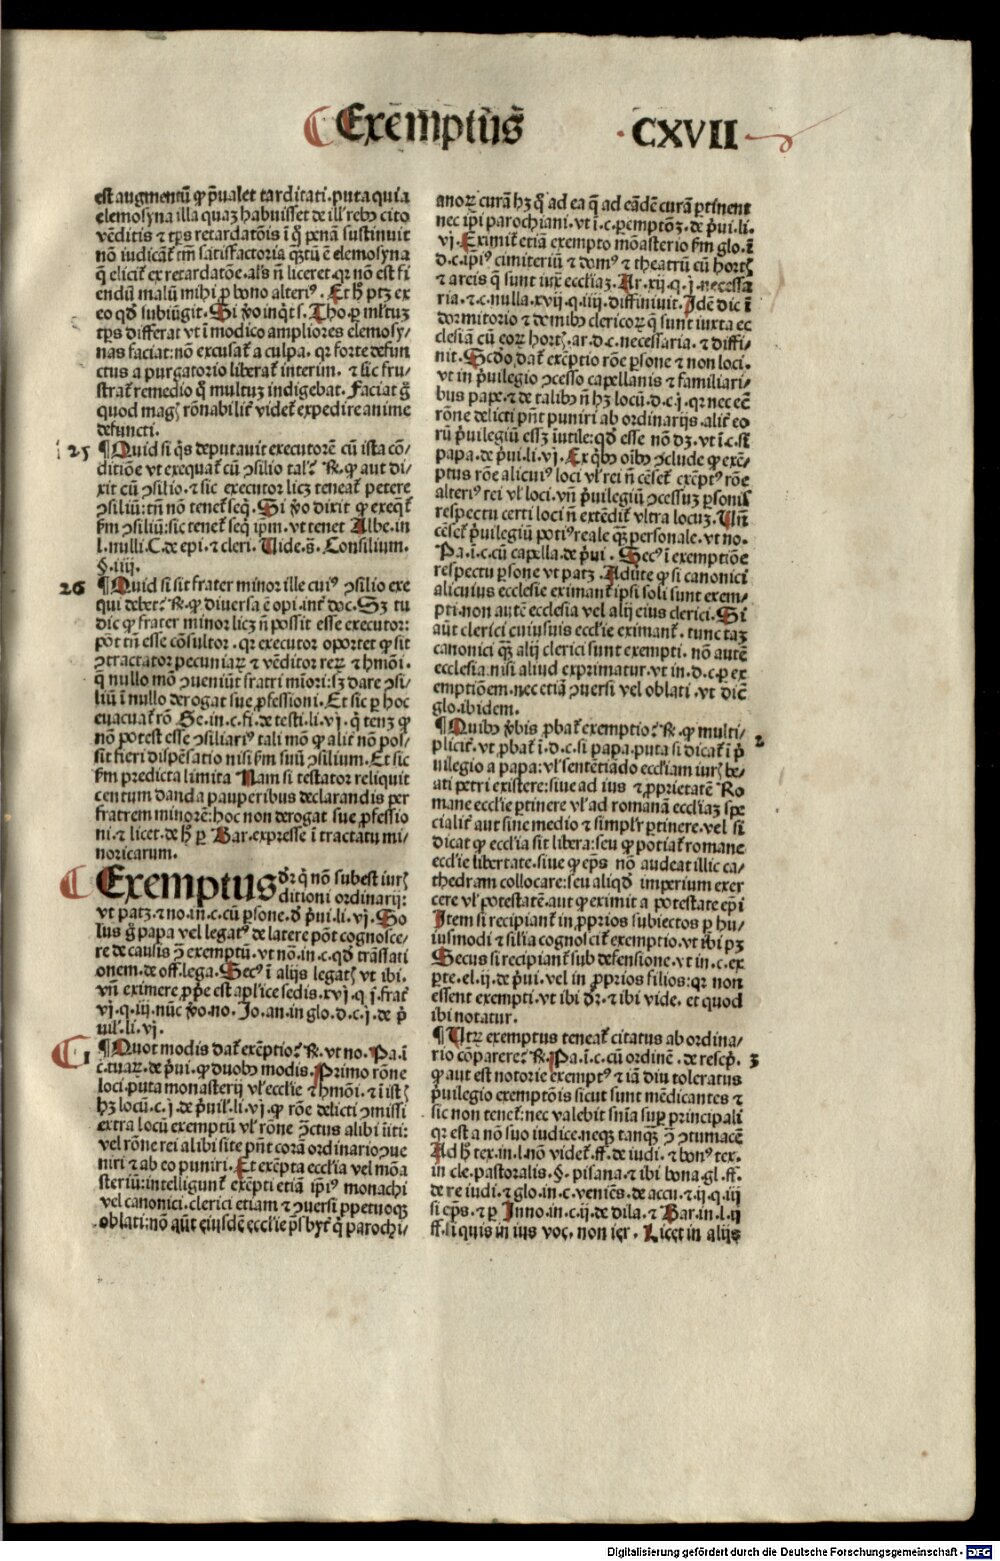 Exēmptūs
CXVII
est augmentū ꝙ p̄ualet tarditati. puta quia
elemosyna illa quaꝫ habuisset de ill' rebꝰ cito
vēditis ⁊ tꝑs retardatōis ī q̄ penā sustinuit
nō iudicat᷑ tm̄ satisfactoria qꝫtū ē elemosyna
q̄ elicit᷑ ex retardatōe. als n̄ liceret. qr nō est fi
endū malū mihi ꝓ bono alteriꝰ. Et h̄ ptꝫ ex
eo qd̄ subiūgit. Si ꝟo inqt s. Tho. ꝑ ml'tuꝫ
tꝑs differat vt ī modico ampliores elemosy⸗
nas faciat: nō excusat᷑ a culpa. qr forte defun
ctus a purgatorio liberat᷑ interim. ⁊ sic fru⸗
strat᷑ remedio q̄ multuꝫ indigebat. Faciat g̊
quod magꝭ rōnabilit᷑ videt᷑ expedire anime
defuncti.
25 ¶ Quid si q̇s deputauit executorē cū ista cō⸗
ditiōe vt exequat᷑ cū ꝯsilio tal'? R̄. ꝙ aut di⸗
xit cū ꝯsilio. ⁊ sic executor licꝫ teneat᷑ petere
ꝯsiliū: tn̄ nō tenet᷑ seq̄. Si ꝟo dixit ꝙ exeqt᷑
ẜm ꝯsiliū: sic tenet᷑ seq̄ ipm̄. vt tenet Albe. in
l. nulli. C. de epi. ⁊ cleri. Vide. s̄. Consilium.
§. iiij.
26 ¶ Quid si sit frater minor ille cuiꝰ ꝯsilio exe
qui debet? R̄. ꝙ diuersa ē opi. int᷑ doc. Sꝫ tu
dic ꝙ frater minor licꝫ n̄ possit esse executor:
pōt tn̄ esse cōsultor. qr executor oportet ꝙ sit
ꝯtractator pecuniaꝝ ⁊ vēditor reꝝ ⁊ hmōi.
q̄ nullo mō ꝯueniūt fratri mīori: sꝫ dare ꝯsi⸗
liū ī nullo derogat sue ꝓfessioni. Et sic ꝑ hoc
euacuat᷑ rō Ge. in. c. fi. de testi. li. vj. q̇ tenꝫ ꝙ
nō potest esse ꝯsiliariꝰ tali mō ꝙ alit᷑ nō pos⸗
sit fieri dispēsatio nisi ẜm suū ꝯsilium. Et sic
ẜm predicta limita Nam si testator reliquit
centum danda pauperibus declarandis per
fratrem minorē: hoc non derogat sue ꝓfessio
ni. ⁊ licet. de h̄ ꝑ Bar. expresse ī tractatu mi⸗
noricarum.
Exemptus dr̄ q̇ nō subest iurꝭ
ditioni ordinarij:
vt patꝫ. ⁊ no. in. c. cū ꝑsone. d̄ p̄ui. li. vj. So
lus g̊ papa vel legatꝰ de latere pōt cognosce⸗
re de causis ꝯ̄ exemptū. vt nō. in. c. qd̄ trāslati
onem. de off. lega. Secꝰ ī alijs legatꝭ vt ibi.
vn̄ eximere ꝓpe est apl'ice sedis. xvj. q̄ j. frat᷑
vj. q. iij. nūc ꝟo. no. Jo. an. in glo. d. c. j. de p̄
uil. li. vj.
¶ Quot modis dat᷑ exēptio? R̄. vt no. Pa. ī
c. tuaꝝ. de p̄ui. ꝙ duobꝰ modis. Primo rōne
loci. puta monasterij vl' ecclie ⁊ hmōi. ⁊ ī istꝭ
hꝫ locū. c. j. de p̄uil. li. vj. ꝙ rōe delicti ꝯmissi
extra locū exemptū vl' rōne ꝯ̄ctus alibi ūiti:
vel rōne rei alibi site pn̄t corā ordinario ꝯue
niri ⁊ ab eo puniri. Et exēpta ecclia vel mōa
steriū: intelligunt᷑ exēpti etiā ip̄iꝰ monachi
vel canonici. clerici etiam ⁊ ꝯuersi ꝑpetuoqꝫ
oblati: nō aūt eiusdē ecclie p̄sbyt᷑ q̄ parochi⸗
anoꝝ curā hꝫ q̄ ad ea q̄ ad eādē curā ꝑtinent
nec ip̄i parochiani. vt ī. c. ꝑemptōꝫ. de p̄ui. li.
vj. Eximit᷑ etiā exempto mōasterio ẜm glo. ī
d. c. ip̄iꝰ cimiteriū ⁊ domꝰ ⁊ theatrū cū hortꝭ
⁊ areis q̄ sunt iuxͣ eccliaꝫ. Ar. xij. q. j. necessa
ria. ⁊. c. nulla. xvij. q. iiij. diffiniuit. Idē dic ī
dormitorio ⁊ domibꝰ clericoꝝ q̄ sunt iuxta ec
clesiā cū eoꝝ hortꝭ. ar. d. c. necessaria. ⁊ diffi⸗
nit. Scd̄o dat᷑ exēptio rōe ꝑsone ⁊ non loci.
vt in p̄uilegio ꝯcesso capellanis ⁊ familiari⸗
bus pape. ⁊ de talibꝰ n̄ hꝫ locū. d. c. j. qr nec eē
rōne delicti pn̄t puniri ab ordinarijs. alit᷑ eo
rū p̄uilegiū essꝫ īutile: qd̄ esse nō dꝫ. vt ī. c. si
papa. de p̄ui. li. vj. Ex q̇bꝰ oībꝰ ꝯclude ꝙ exē⸗
ptus rōe alicuiꝰ loci vl' rei n̄ cēset᷑ exēptꝰ rōe
alteriꝰ rei vl' loci. vn̄ p̄uilegiū ꝯcessuꝫ ꝑsonis
respectu certi loci n̄ extēdit᷑ vltra locuꝫ. Vn̄
cēset᷑ p̄uilegiū potiꝰ reale qꝫ personale. vt no.
Pa. ī. c. cū capella. de p̄ui. Secꝰ ī exemptiōe
respectu ꝑsone vt patꝫ. Aduīte ꝙ si canonici
alicuius ecclesie eximant᷑ ipsi soli sunt exem⸗
pti. non autē ecclesia vel alij eius clerici. Si
aūt clerici cuiusuis ecclie eximant᷑. tunc taꝫ
canonici qꝫ alij clerici sunt exempti. nō autē
ecclesia: nisi aliud exprimatur. vt in. d. c. ꝑ ex
emptiōem. nec etiā ꝯuersi vel oblati. vt dic̄
glo. ibidem.
¶ Quibꝰ ꝟbis ꝓbat᷑ exemptio? R̄. ꝙ multi⸗
plicit᷑. vt ꝓbat᷑ ī. d. c. si papa. puta si dicat᷑ ī p̄ 2
uilegio a papa: vl' sentētiādo eccliam iurꝭ be⸗
ati petri existere: siue ad ius ⁊ ꝓprietatē Ro
mane ecclie ꝑtinere vl' ad romanā eccliaꝫ spe
cialit᷑ aut sine medio ⁊ simpl'r ꝑtinere. vel si
dicat᷑ ꝙ ecclia sit libera: seu ꝙ potiat᷑ romane
ecclie libertate. siue ꝙ ep̄s nō audeat illic ca⸗
thedram collocare: seu aliqd̄ imperium exer
cere vl' potestatē. aut ꝙ eximit a potestate ep̄i
Item si recipiant᷑ in ꝓprios subiectos ꝑ hu⸗
iusmodi ⁊ silia cognoscit᷑ exemptio. vt ibi pꝫ
Secus si recipiant᷑ sub defensione. vt in. c. ex
ꝑte. el. ij. de p̄ui. vel in ꝓprios filios: qr non
essent exempti. vt ibi dr̄. ⁊ ibi vide. et quod
ibi notatur.
¶ Vtꝝ exemptus teneat᷑ citatus ab ordina⸗
rio cōparere? R̄. Pa. ī. c. cū ordinē. de rescp̄. 3
ꝙ aut est notorie exemptꝰ ⁊ iā diu toleratus
p̄uilegio exemptōis sicut sunt mēdicantes ⁊
sic non tenet᷑: nec valebit sn̄ia suꝑ principali
qr est a nō suo iudice. neqꝫ tanqꝫ ꝯ̄ ꝯtumacē
Ad h̄ tex. in. l. nō videt᷑. ff. de iudi. ⁊ bonꝰ tex.
in cle. pastoralis. §. pisana. ⁊ ibi bona gl. ff.
de re iudi. ⁊ glo. in. c. veniēs. de accu. ⁊ ij. q. iij
si ep̄s. ⁊ ꝑ Inno. in c. ij. de dila. ⁊ Bar. in. l. ij
ff. si quis in ius voc. non ier. Licet in alijs
Digitalisierung gefördert durch die Deutsche Forschungsgemeinschaft - DFG